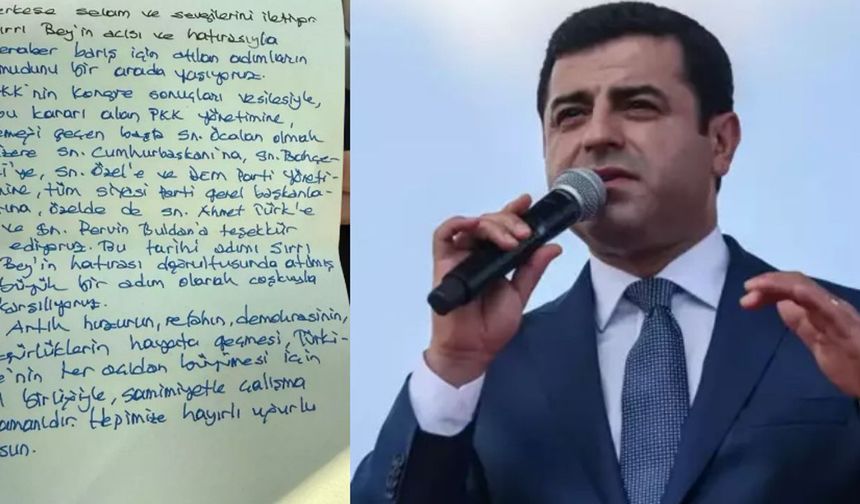 erkese selam ve sevgilerini iletiyor
ırrı Bey'in acısı ve hatırasıyla
eraber barış için atılan adımların
mudunu bir arada yaşıyoruz.
KK'nin Kongre sonuçları vesilesiyle,
bu kararı alan PKK yönetimine,
emeği geçen başta Sn. Öcalan olmak
üzere Sn. Cumhurbaşkanı'na, Sn. Bahçe
i'ye, Sn. Özel'e ve DEM Parti yöneti-
mine, tüm siyasi parti genel başkanla-
rına, özelde de Sn. Ahmet Türk'e
ve Sn. Pervin Buldan'a teşekkür
ediyoruz. Bu tarihi adımı Sırrı
Bey'in hatırası doğrultusunda atılmış
büyük bir adım olarak coşkuyla
karşılıyoruz.
Artık huzurun, refahın, demokrasinin,
gürlüklerin hayata geçmesi, Türki-
e'nin her açıdan büyümesi için
l birliğiyle, samimiyetle çalışma
amanıdır. Hepimize hayırlı uğurlu
sun.